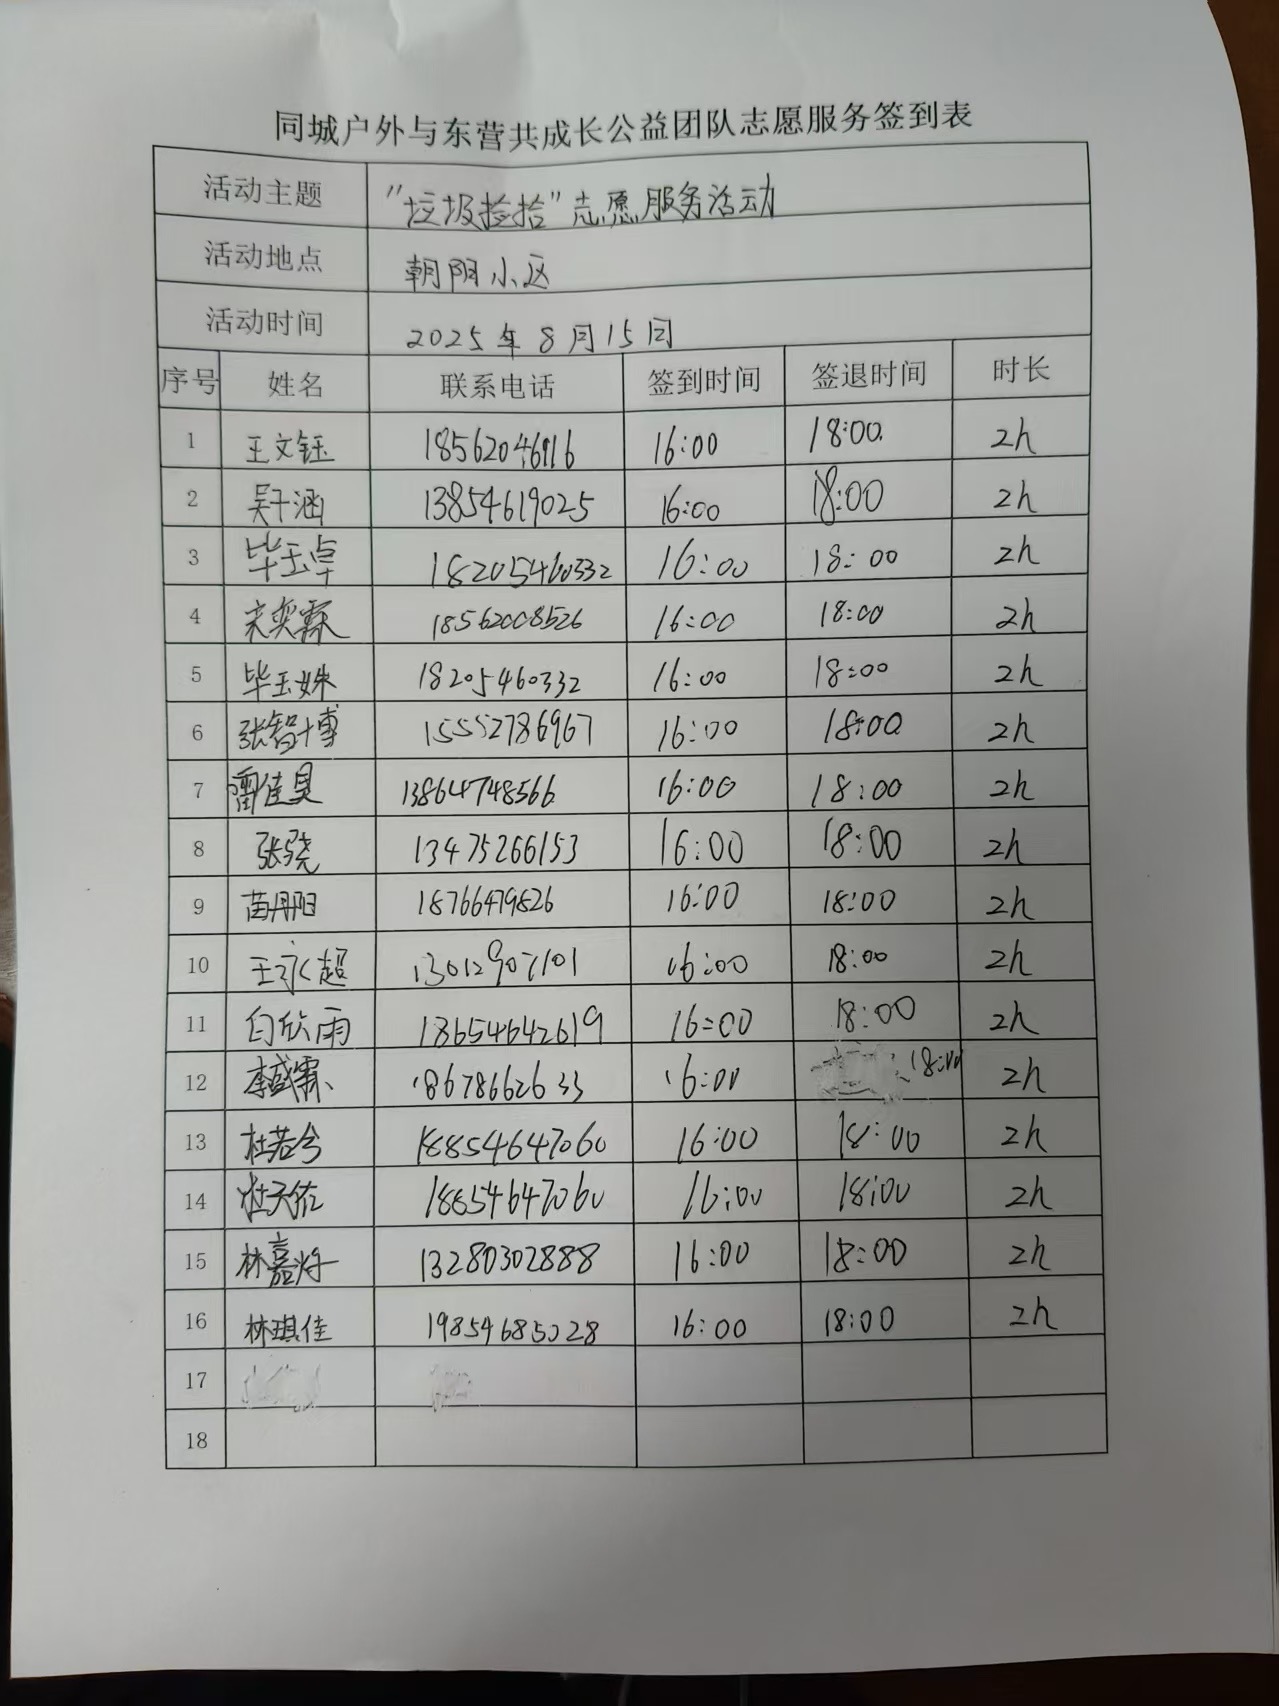 同城户外与东营共成长公益团队志愿服务签到表
活动主题 "垃圾捡拾"志愿服务活动
活动地点 朝阳小区
活动时间 2025年8月15日
序号 姓名 联系电话 签到时间 签退时间 时长
1 王文钰 18562046916 16:00 18:00 2h
2 吴千涵 13854619025 16:00 18:00 2h
3 毕玉卓 18205460332 16:00 18:00 2h
4 宋奕霖 18562008526 16:00 18:00 2h
5 毕玉姝 18205460332 16:00 18:00 2h
6 张智博 15552786967 16:00 18:00 2h
7 雷佳昊 13864748566 16:00 18:00 2h
8 张骁 13475266153 16:00 18:00 2h
9 苗丹阳 18766479826 16:00 18:00 2h
10 王永超 13012907101 16:00 18:00 2h
11 白欣雨 18654642619 16:00 18:00 2h
12 李盛霖 18678662633 16:00 18:00 2h
13 杜若兮 18854647060 16:00 18:00 2h
14 杜天佑 18854647060 16:00 18:00 2h
15 林嘉 13280302888 16:00 18:00 2h
16 林琪佳 19854685028 16:00 18:00 2h
17
18